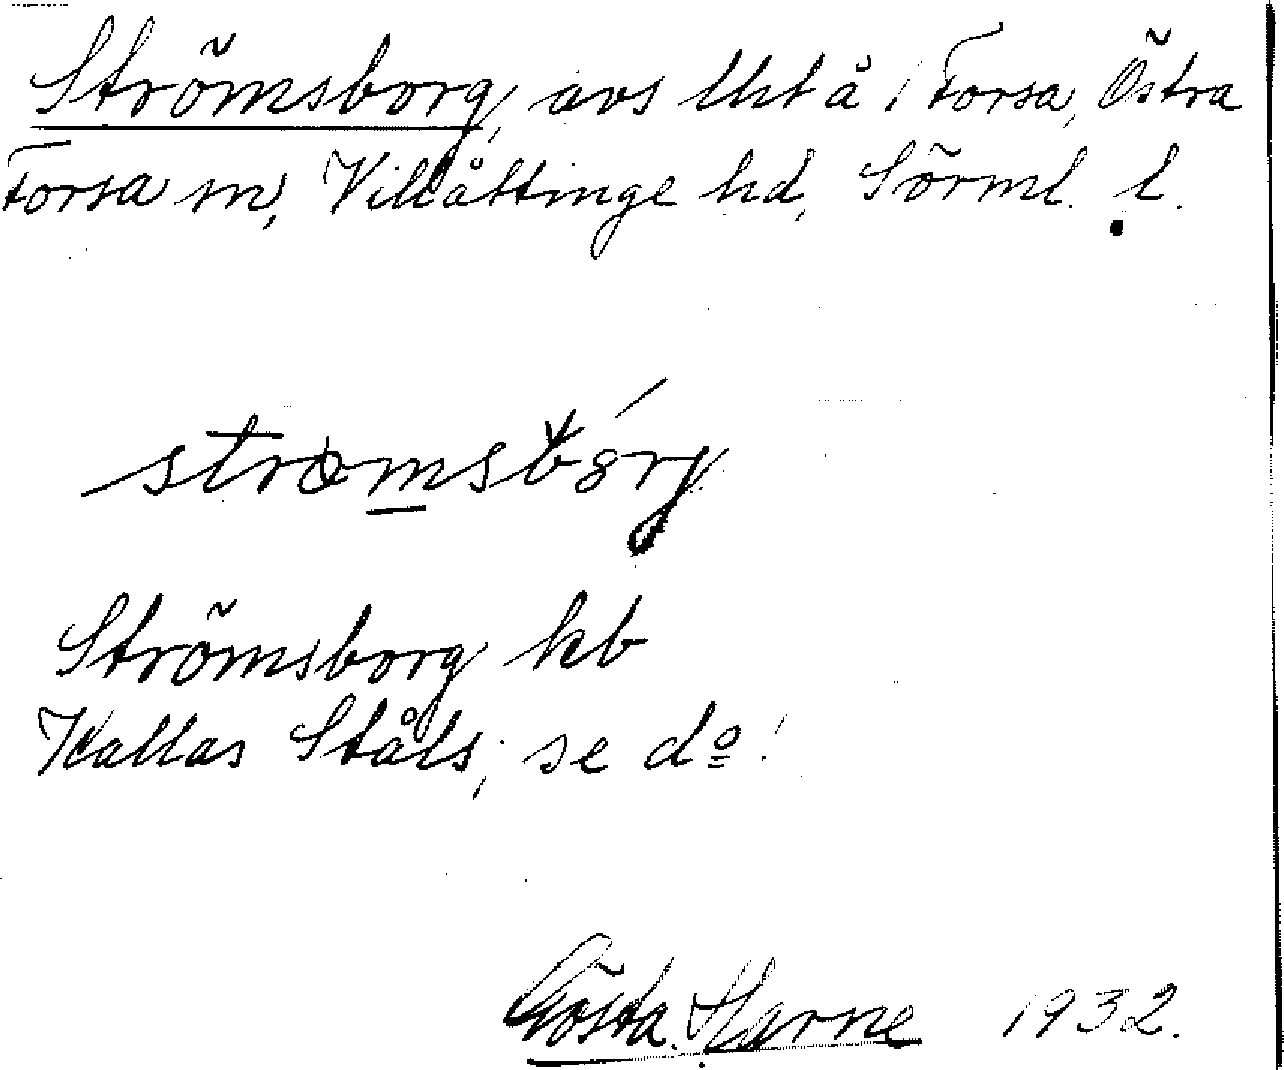 Strömsborg, avs Utå i Forsa, Östra
Forsa sn, Villåttinge hd, Sörml. l.
strømsbǒrg
Strömsborg kb
Kallas Ståls; se do!
Gösta Harne 1932.